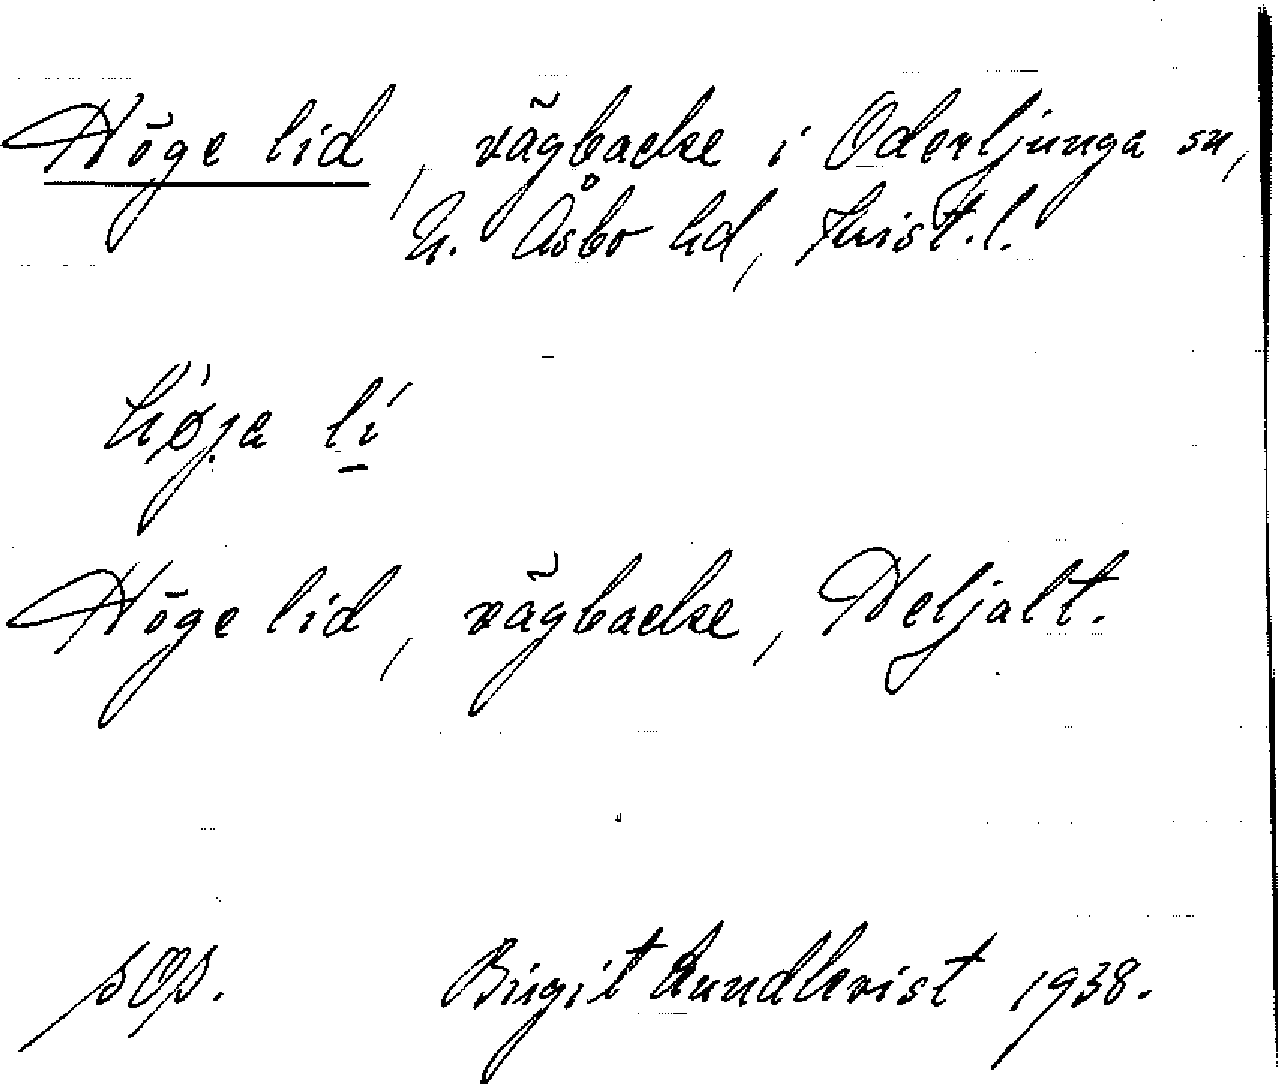 Höge lid, vägbacke i Oderljunga sn,
N. Åsbo hd, Krist. l.
höja lí
Höge lid, vägbacke, Heljalt.
sop. Birgit Lundkvist 1938.